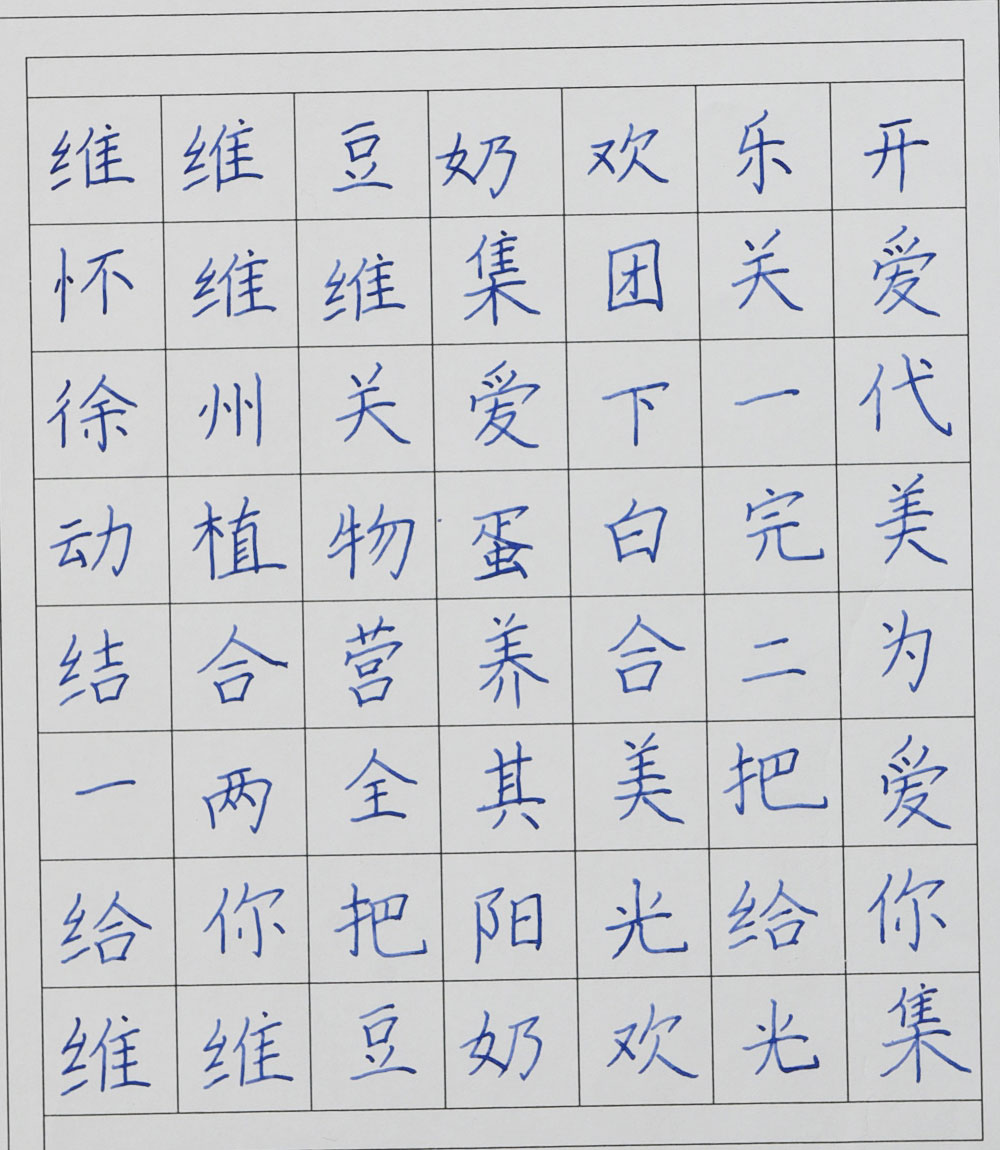 维维豆奶欢乐开
怀维维集团关爱
徐州关爱下一代
动植物蛋白完美
结合营养合二为
一两全其美把爱
给你把阳光给你
维维豆奶欢光集